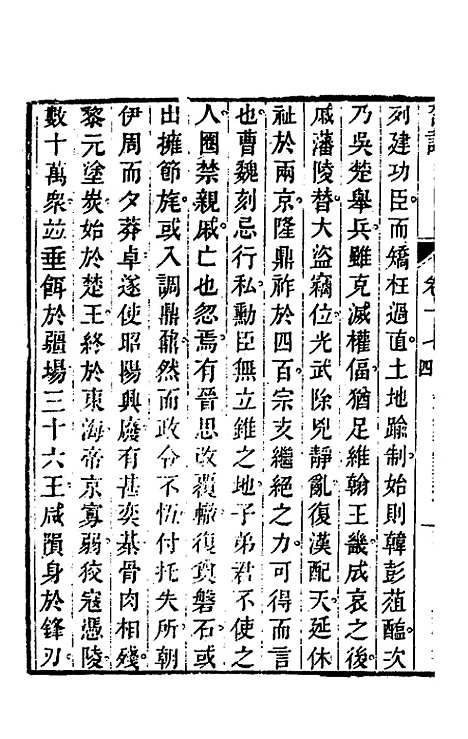 列建功臣而矯枉過直土地踰制始則韓彭葅醢次
乃吳楚舉兵雖克滅權偪猶足維翰王畿成哀之後
戚藩陵替大盜竊位光武除兇靜亂復漢配天延休
祉於兩京隆鼎祚於四百宗支繼絕之力可得而言
也曹魏刻忌行私勳臣無立錐之地子弟君不使之
人圈禁親戚亡也忽焉有晉思改覆轍復寘磐石或
出擁節旄或入調鼎鼐然而政令不恆付托失所朝
伊周而夕莽卓遂使昭陽興廢有甚奕棊骨肉相殘
黎元塗炭始於楚王終於東海帝京寡弱狡寇憑陵
數十萬衆竝垂餌於疆場三十六王咸隕身於鋒刃
卷十七
四